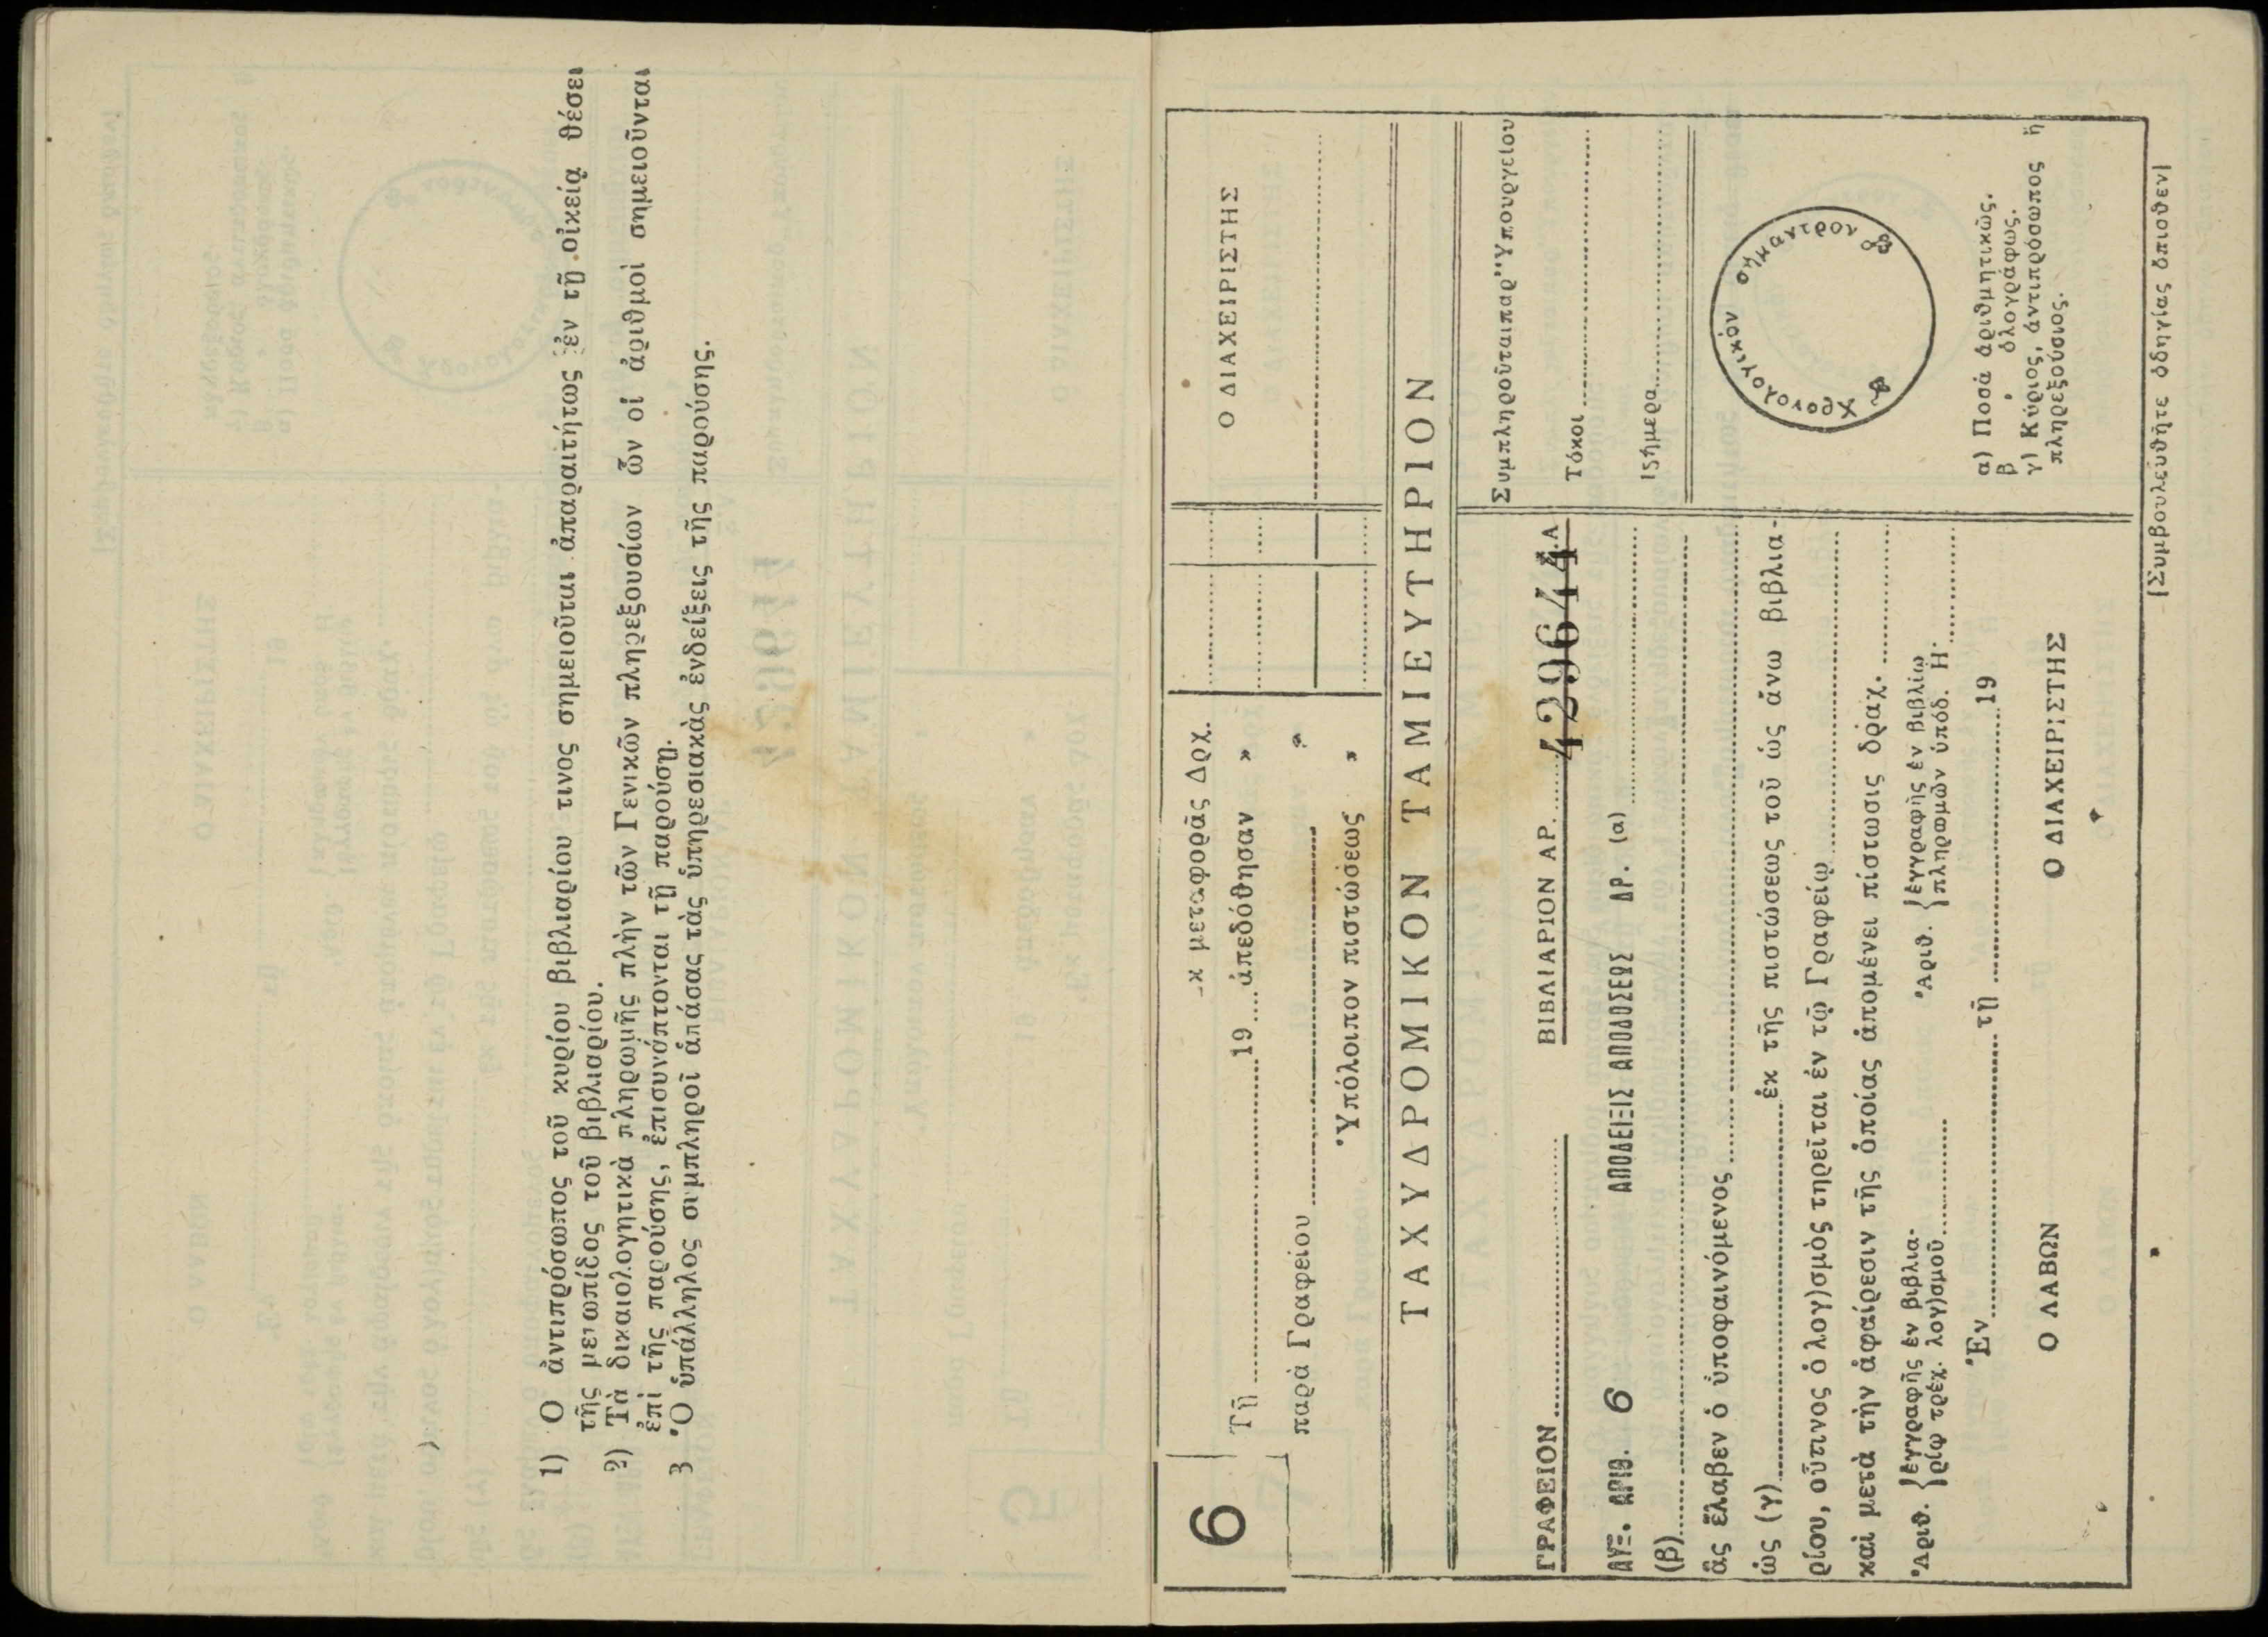 1) Ο ἀντιπρόσωπος τοῦ κυρίου βιβλιαρίου τινος σημειοῦται ἀπαραιτήτως ἐν τῇ οἰκείᾳ θέσει
τῆς μετωπίδος τοῦ βιβλιαρίου.
2) Τὰ δικαιολογητικὰ πληρωμῆς πλὴν τῶν Γενικῶν πληρεξουσίων ὧν οἱ ἀριθμοὶ σημειοῦνται
ἐπὶ τῆς παρούσης, ἐπισυνάπτονται τῇ παρούσῃ.
3 Ὁ ὑπάλληλος συμπληροῖ ἁπάσας τὰς ὑπηρεσιακὰς ἐνδείξεις τῆς παρούσης.
6
-κ μεταφορᾶς Δρχ.
Τῇ 19 ἀπεδόθησαν »
παρὰ Γραφείου »
Ὑπόλοιπον πιστώσεως »
Ο ΔΙΑΧΕΙΡΙΣΤΗΣ
ΤΑΧΥΔΡΟΜΙΚΟΝ ΤΑΜΙΕΥΤΗΡΙΟΝ
ΓΡΑΦΕΙΟΝ ΒΙΒΛΙΑΡΙΟΝ ΑΡ. 429644 Σ.Α
ΑΥΞ. ΑΡΙΘ. 6 ΑΠΟΔΕΙΞΙΣ ΑΠΟΔΟΣΕΩΣ ΔΡ. (α)
(β)
ἃς ἔλαβεν ὁ ὑποφαινόμενος
ὡς (γ) ἐκ τῆς πιστώσεως τοῦ ὡς ἄνω βιβλια-
ρίου, οὗτινος ὁ λογ)σμὸς τηρεῖται ἐν τῷ Γραφείῳ
καὶ μετὰ τὴν ἀφαίρεσιν τῆς ὁποίας ἀπομένει πίστωσις δραχ.
Ἀριθ. {ἐγγραφῆς ἐν βιβλια-
ρίῳ τρέχ. λογ)σμοῦ
Ἀριθ. {ἐγγραφῆς ἐν βιβλίῳ
πληρωμῶν ὑπόδ. Η΄
Ἐν τῇ 19
Ο ΛΑΒΩΝ Ο ΔΙΑΧΕΙΡΙΣΤΗΣ
Συμπληροῦται παρ' Ὑπουργείου
Τόκοι
15ήμερα
Χρονολογικόν σήμαντρον
α) Ποσά ἀριθμητικῶς.
β „ ὁλογράφως.
γ) Κύριος, ἀντιπρόσωπος ἤ
πληρεξούσιος.
[Συμβουλευθῆτε ὁδηγίας ὄπισθεν]